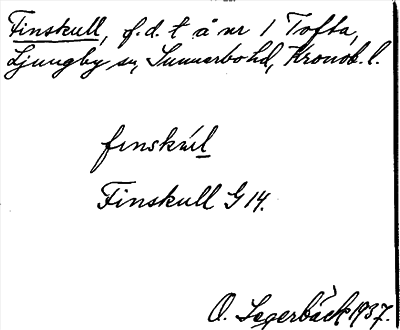 Finskull, f.d. t å nr 1 Tofta,
Ljungby sn, Sunnerbo hd, Kronob. l.
finskul
Finskull G 14.
O. Segerbäck 1937.